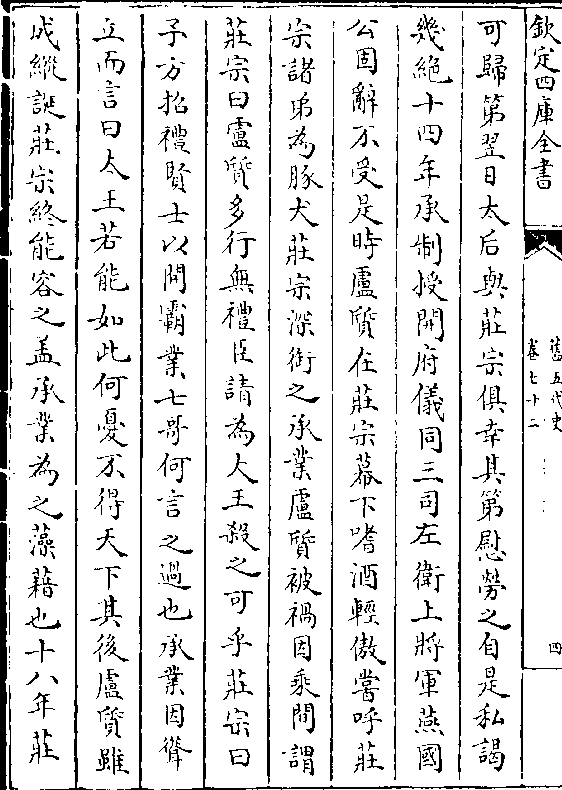 欽定四庫全書
舊五代史
卷七十二
四
可歸第翌日太后與莊宗俱幸其第慰勞之自是私謁
幾絶十四年承制授開府儀同三司左衛上將軍燕國
公固辭不受是時盧質在莊宗幕下嗜酒輕傲嘗呼莊
宗諸弟為豚犬莊宗深銜之承業盧質被禍因乘間謂
莊宗曰盧質多行無禮臣請為大王殺之可乎莊宗曰
予方招禮賢士以開霸業七哥何言之過也承業因聳
立而言曰大王若能如此何憂不得天下其後盧質雖
成縱誕莊宗終能容之盖承業為之藻藉也十八年莊